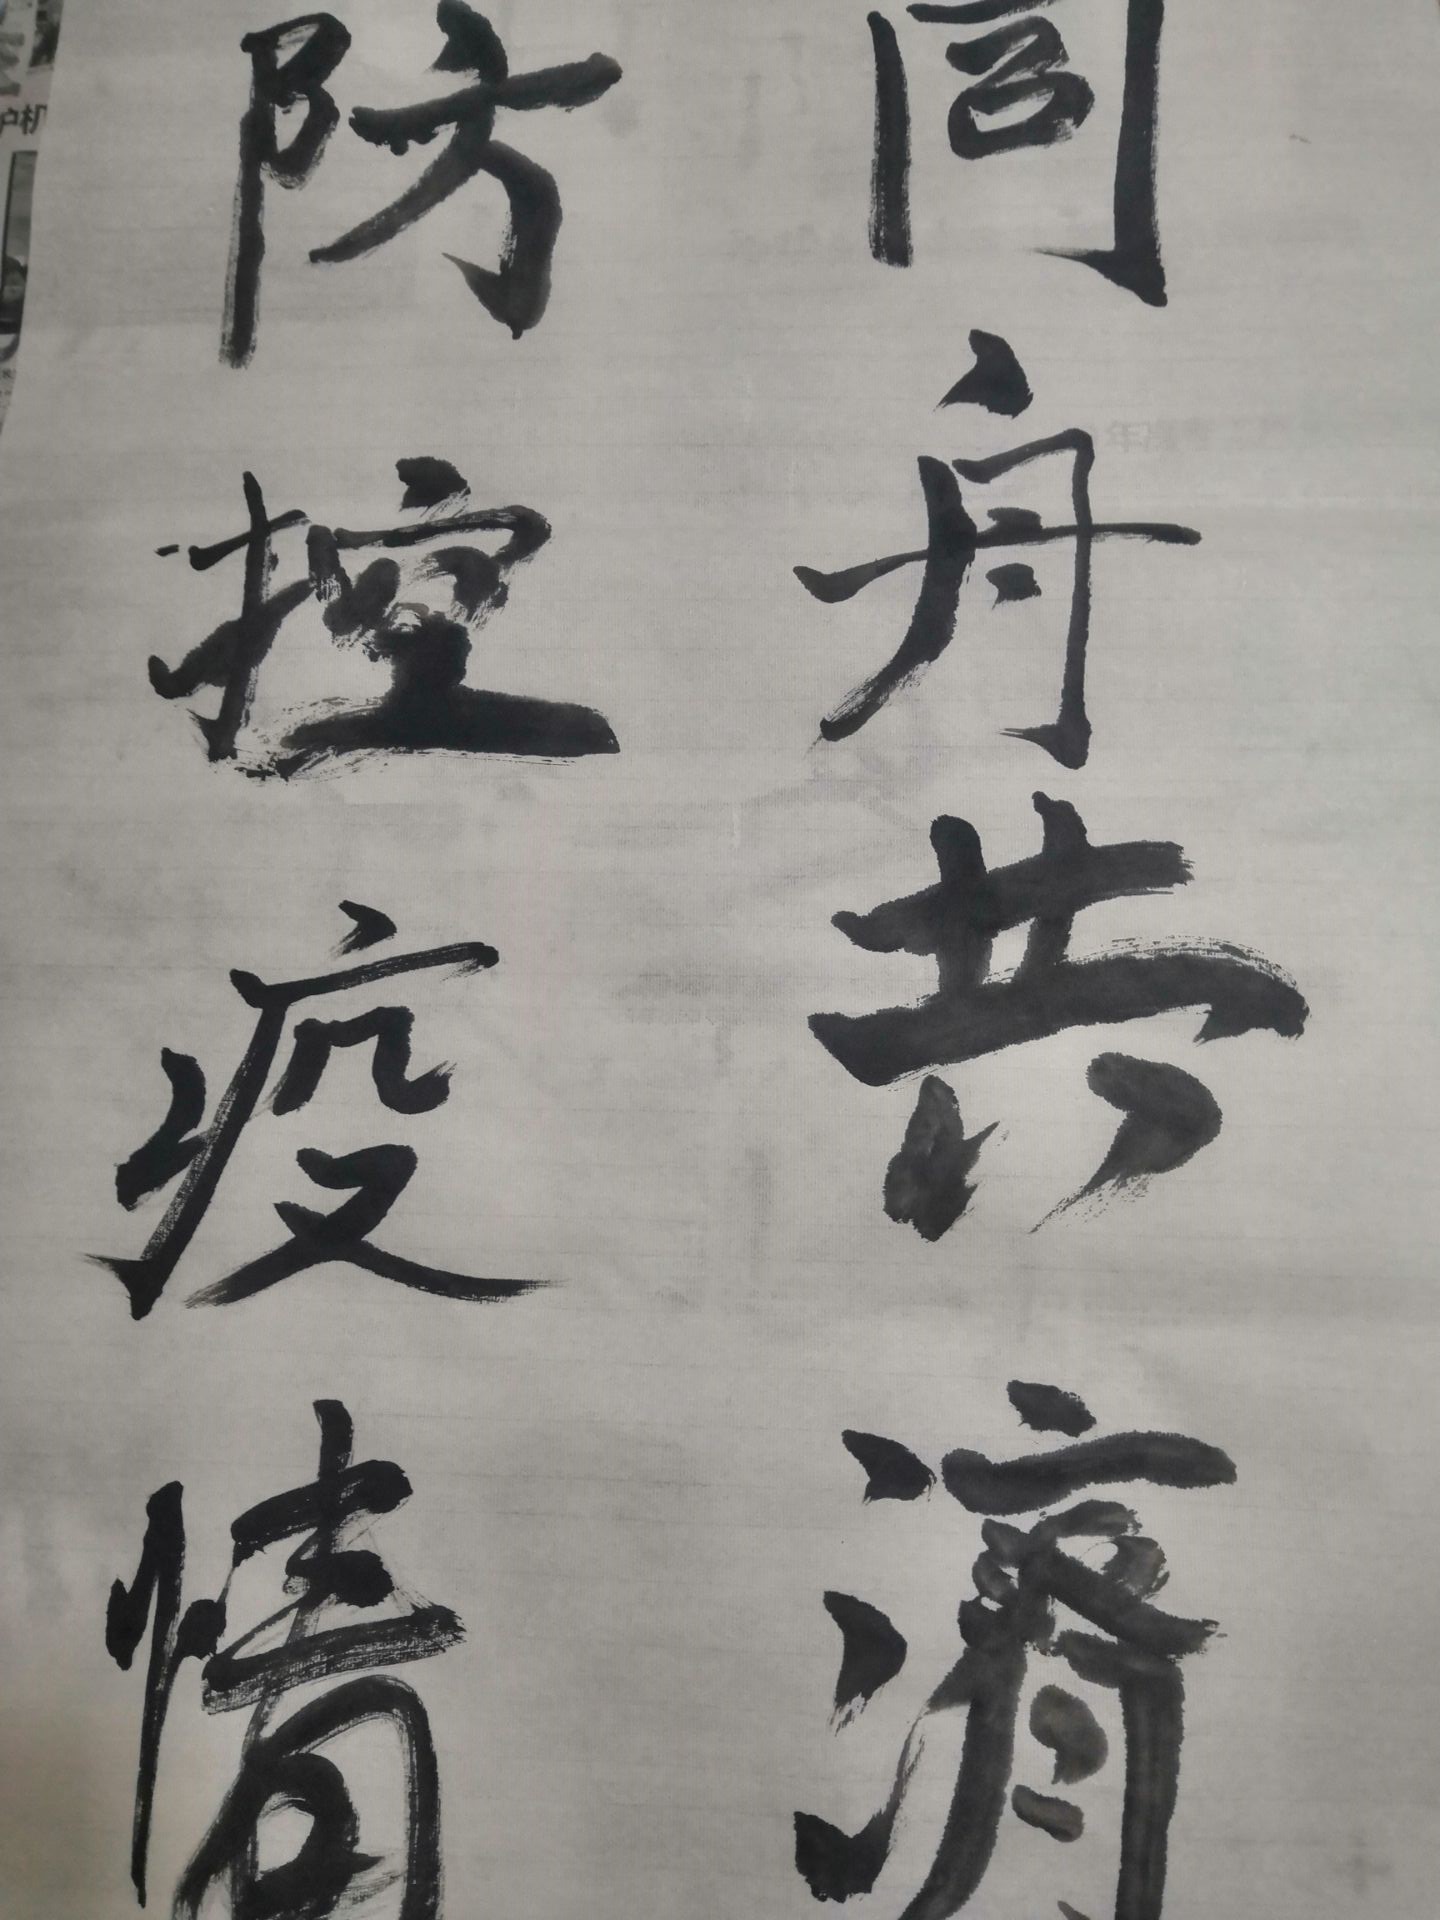 同舟共濟
防控疫情
护机